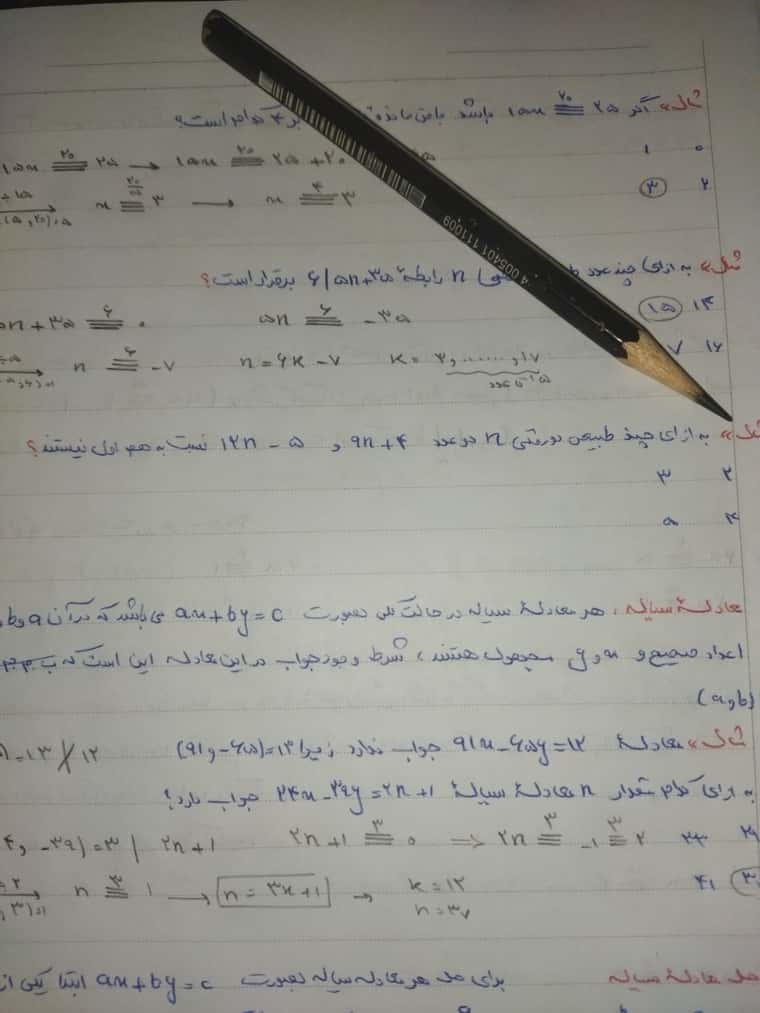 مثال» اگر ۱۵x ≡۲۰ ۲۵ باشد باقی مانده بر ۴ کدام است؟
۰ ۱
۲ ۳
۱۵x ≡۲۰ ۲۵ → ۱۵x ≡۲۰ ۲۵+۲۰
x ≡ ۳ → x ≡۴ ۳
مثال» به ازای چند عدد n رابطهٔ ۶|۵n+۳۵ برقرار است؟
۱۴ ۱۵
۱۶ ۷
۵n + ۳۵ ≡۶ ۰ ۵n ≡۶ -۳۵
n ≡۶ -۷ n=۶k-۷ k=۳,......,۱۷
۱۵ تا عدد
4 005401 111009
مثال» به ازای چند طبیعی دورقمی n دو عدد ۹n+۴ و ۱۲n-۵ نسبت به هم اول نیستند؟
۲ ۳
۴ ۵
معادلهٔ سیاله: هر معادلهٔ سیاله در حالت کلی بصورت ax+by=c می باشد که در آن a و b
اعداد صحیح و x و y مجهول هستند، شرط وجود جواب در این معادله این است که
(a,b)
مثال» معادلهٔ ۹۱x-۶۵y=۱۲ جواب ندارد زیرا ۱۳=(۹۱,-۶۵) ۱۳∤۱۲
به برای کدام مقدار n معادلهٔ سیالهٔ ۲۴x-۳۹y=۲n+۱ جواب دارد؟
۲۹ ۳۳ -۳۹)=۳ | ۲n+۱ ۲n+۱ ≡۳ ۰ => ۲n ≡۳ -۱ ≡۳ ۲
۳ ۴۱ n ≡۳ ۱ → n=۳k+۱ → k=۱۲
n=۳۷
حل معادلهٔ سیاله برای حل هر معادله سیاله بصورت ax+by=c ابتدا یکی از